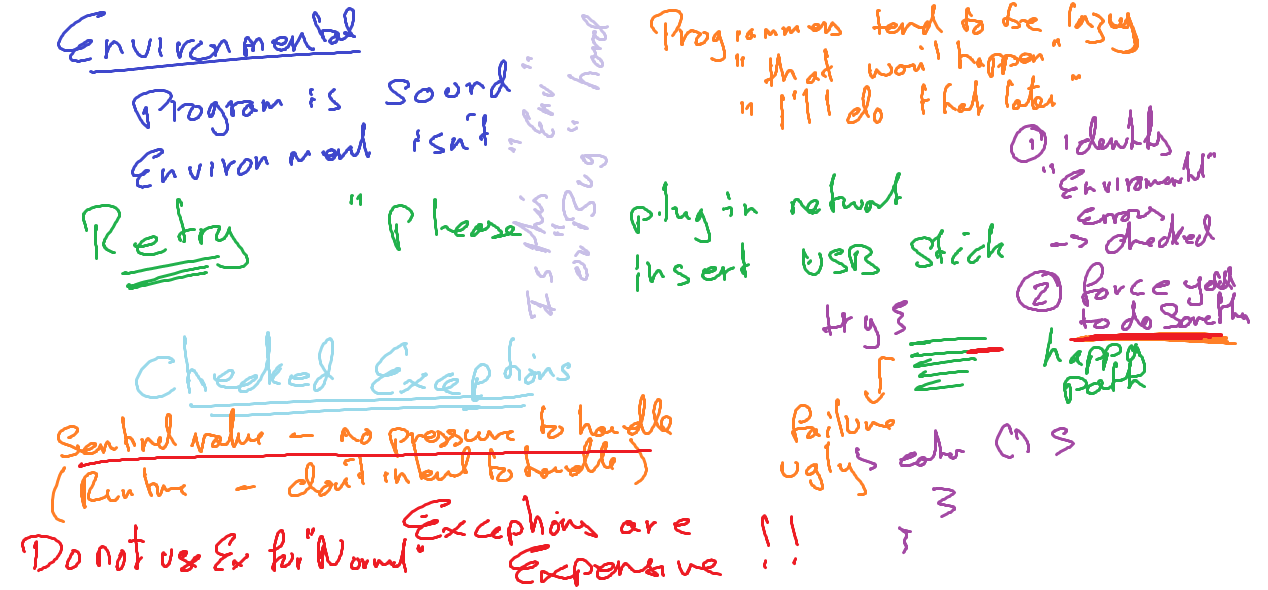 Environmental
Program is sound
Environment isn't
Retry
" Please
plug in network
insert USB Stick
Is this "Env"
or "Bug" hard
Programmers tend to be lazy
"that won't happen"
"I'll do that later"
① identify
"Enviromental"
errors
-> checked
② force you
to do Somethn
try {
happy
path
failure
ugly
} catch () {
}
}
Checked Exceptions
Sentinel value - no pressure to handle
(Runtime - don't intend to handle)
Do not use Ex for "Normal"
Exceptions are
Expensive !!